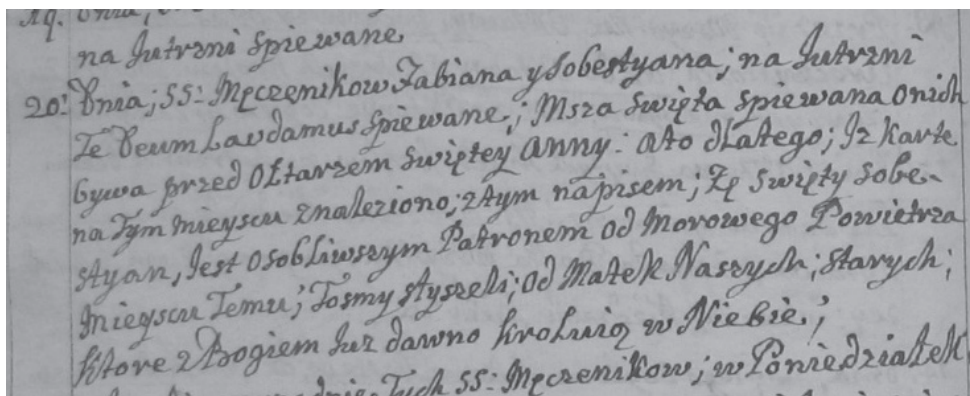 19. Dnia,
na Jutrzni spiewane
20: Dnia; SS: Męczęnikow Fabiana y Sobestyana; na Jutrzni
Te Deum Laudamus spiewane; Msza swięta spiewana onich
bywa przed Ołtarzem swiętey Anny: ato dlatego; Jz karte
na Tym mieyscu znaleziono; ztym napisem; Zę Swięty Sobe-
styan, Jest osobliwszym Patronem od Morowego Powietrza
mieyscu Temu; Tosmy słyszeli; od Matek Naszych; starych;
ktore z Bogiem Juz dawno kroluią w Niebie;
Tych SS: Męczenikow; w Poniedziałek